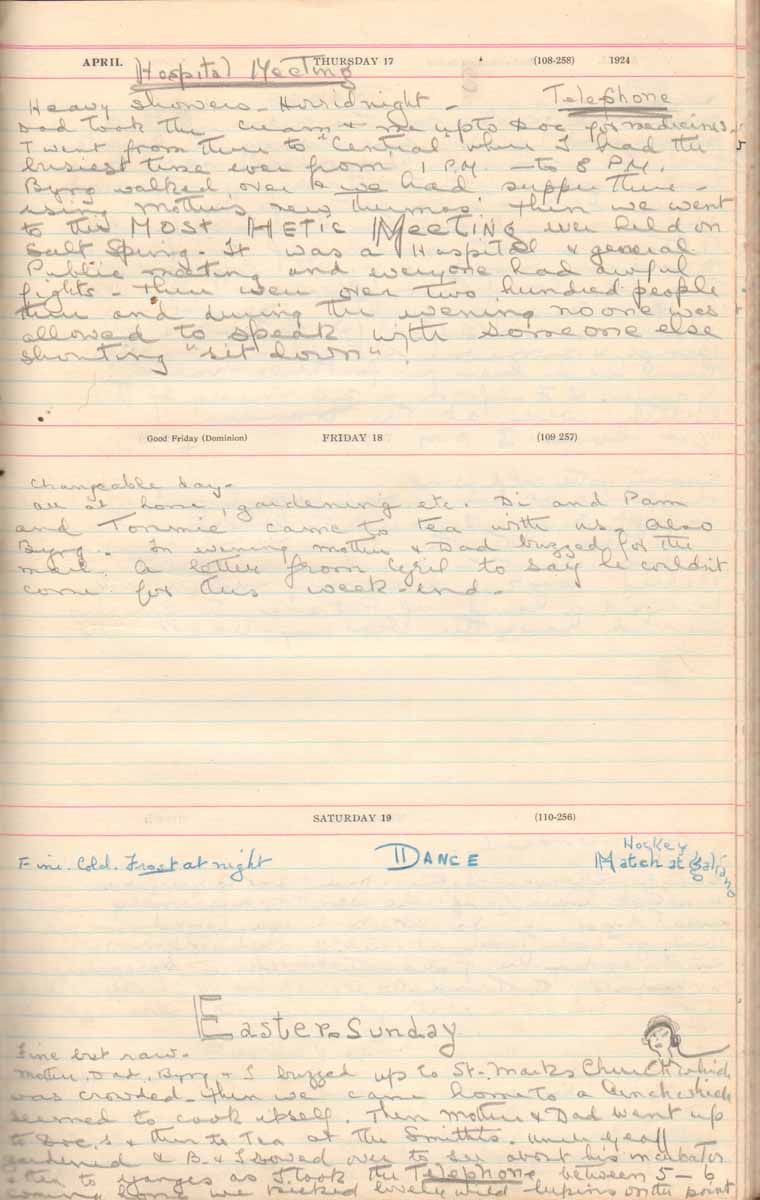 APRIL. THURSDAY 17 (108-258) 1924
Hospital Meeting
Heavy showers - Horrid night - Telephone
Dad took the cream & me up to Doc for medicines.
I went from there to "Central" where I had the
busiest time ever from 1 P.M. - to 8 P.M.
Byrg walked over & we had supper there -
using mother's new thermos. Then we went
to the MOST HETIC MEETING ever held on
Salt Spring. It was a Hospital & general
Public meeting and everyone had awful
fights - There were over two hundred people
there and during the evening no one was
allowed to speak with someone else
shouting "sit down"!
Good Friday (Dominion) FRIDAY 18 (109 257)
Changeable day -
all at home, gardening etc. Di and Pam
and Tommie came to tea with us. also
Byrg. In evening mother & Dad buzzed for the
mail. A letter from Cyril to say he couldn't
come for this week-end.
SATURDAY 19 (110-256)
Fine. Cold. Frost at night DANCE Hockey
Match at Galiano
Easter Sunday
Fine but raw -
Mother, Dad, Byrg & I buzzed up to St. Marks Church which
was crowded - then we came home to a lunch which
seemed to cook itself. Then Mother & Dad went up
to Doc's & then to Tea at the Smiths.
gardened & B. & I rowed over to see about his incubator
& then to as I took the Telephone between 5 - 6
coming home we picked lovely wild lupins on the point